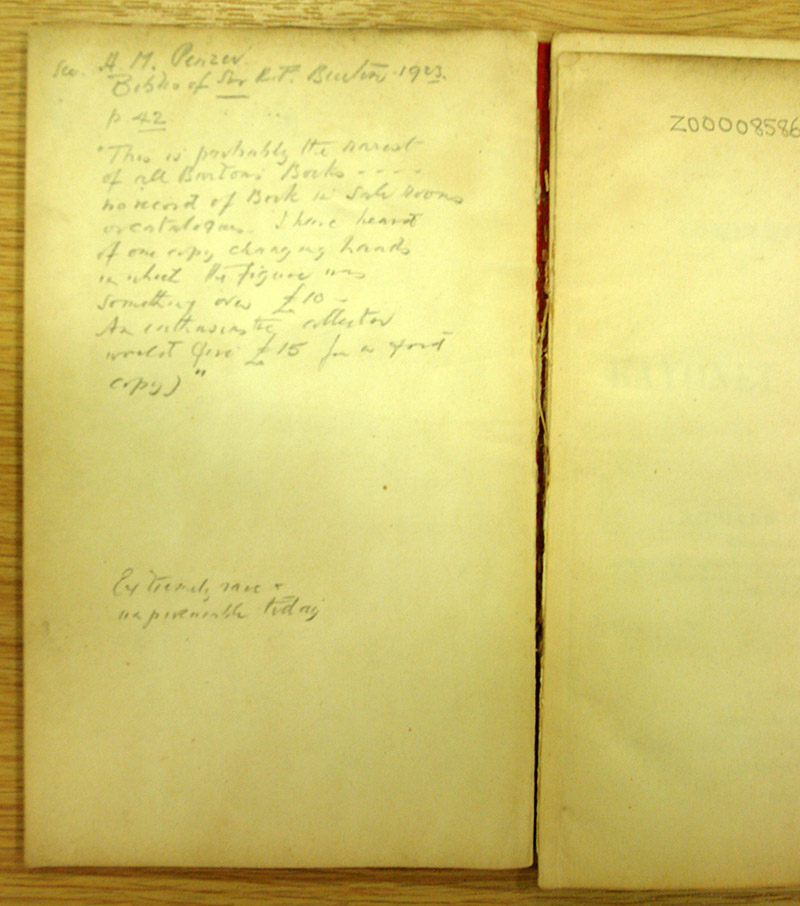 See. A. M. Penzer.
Biblio of Sir R. F. Burton 1923.
p 42
"This is probably the rarest
of all Burtons Books - - - -
no record of Book in Sale rooms
or catalogues. I have heard
of one copy changing hands
in which the figure was
something over £10 -
An enthusiastic collector
would give £15 for a good
copy)"
Extremely rare &
unprocurable today
Z00008586